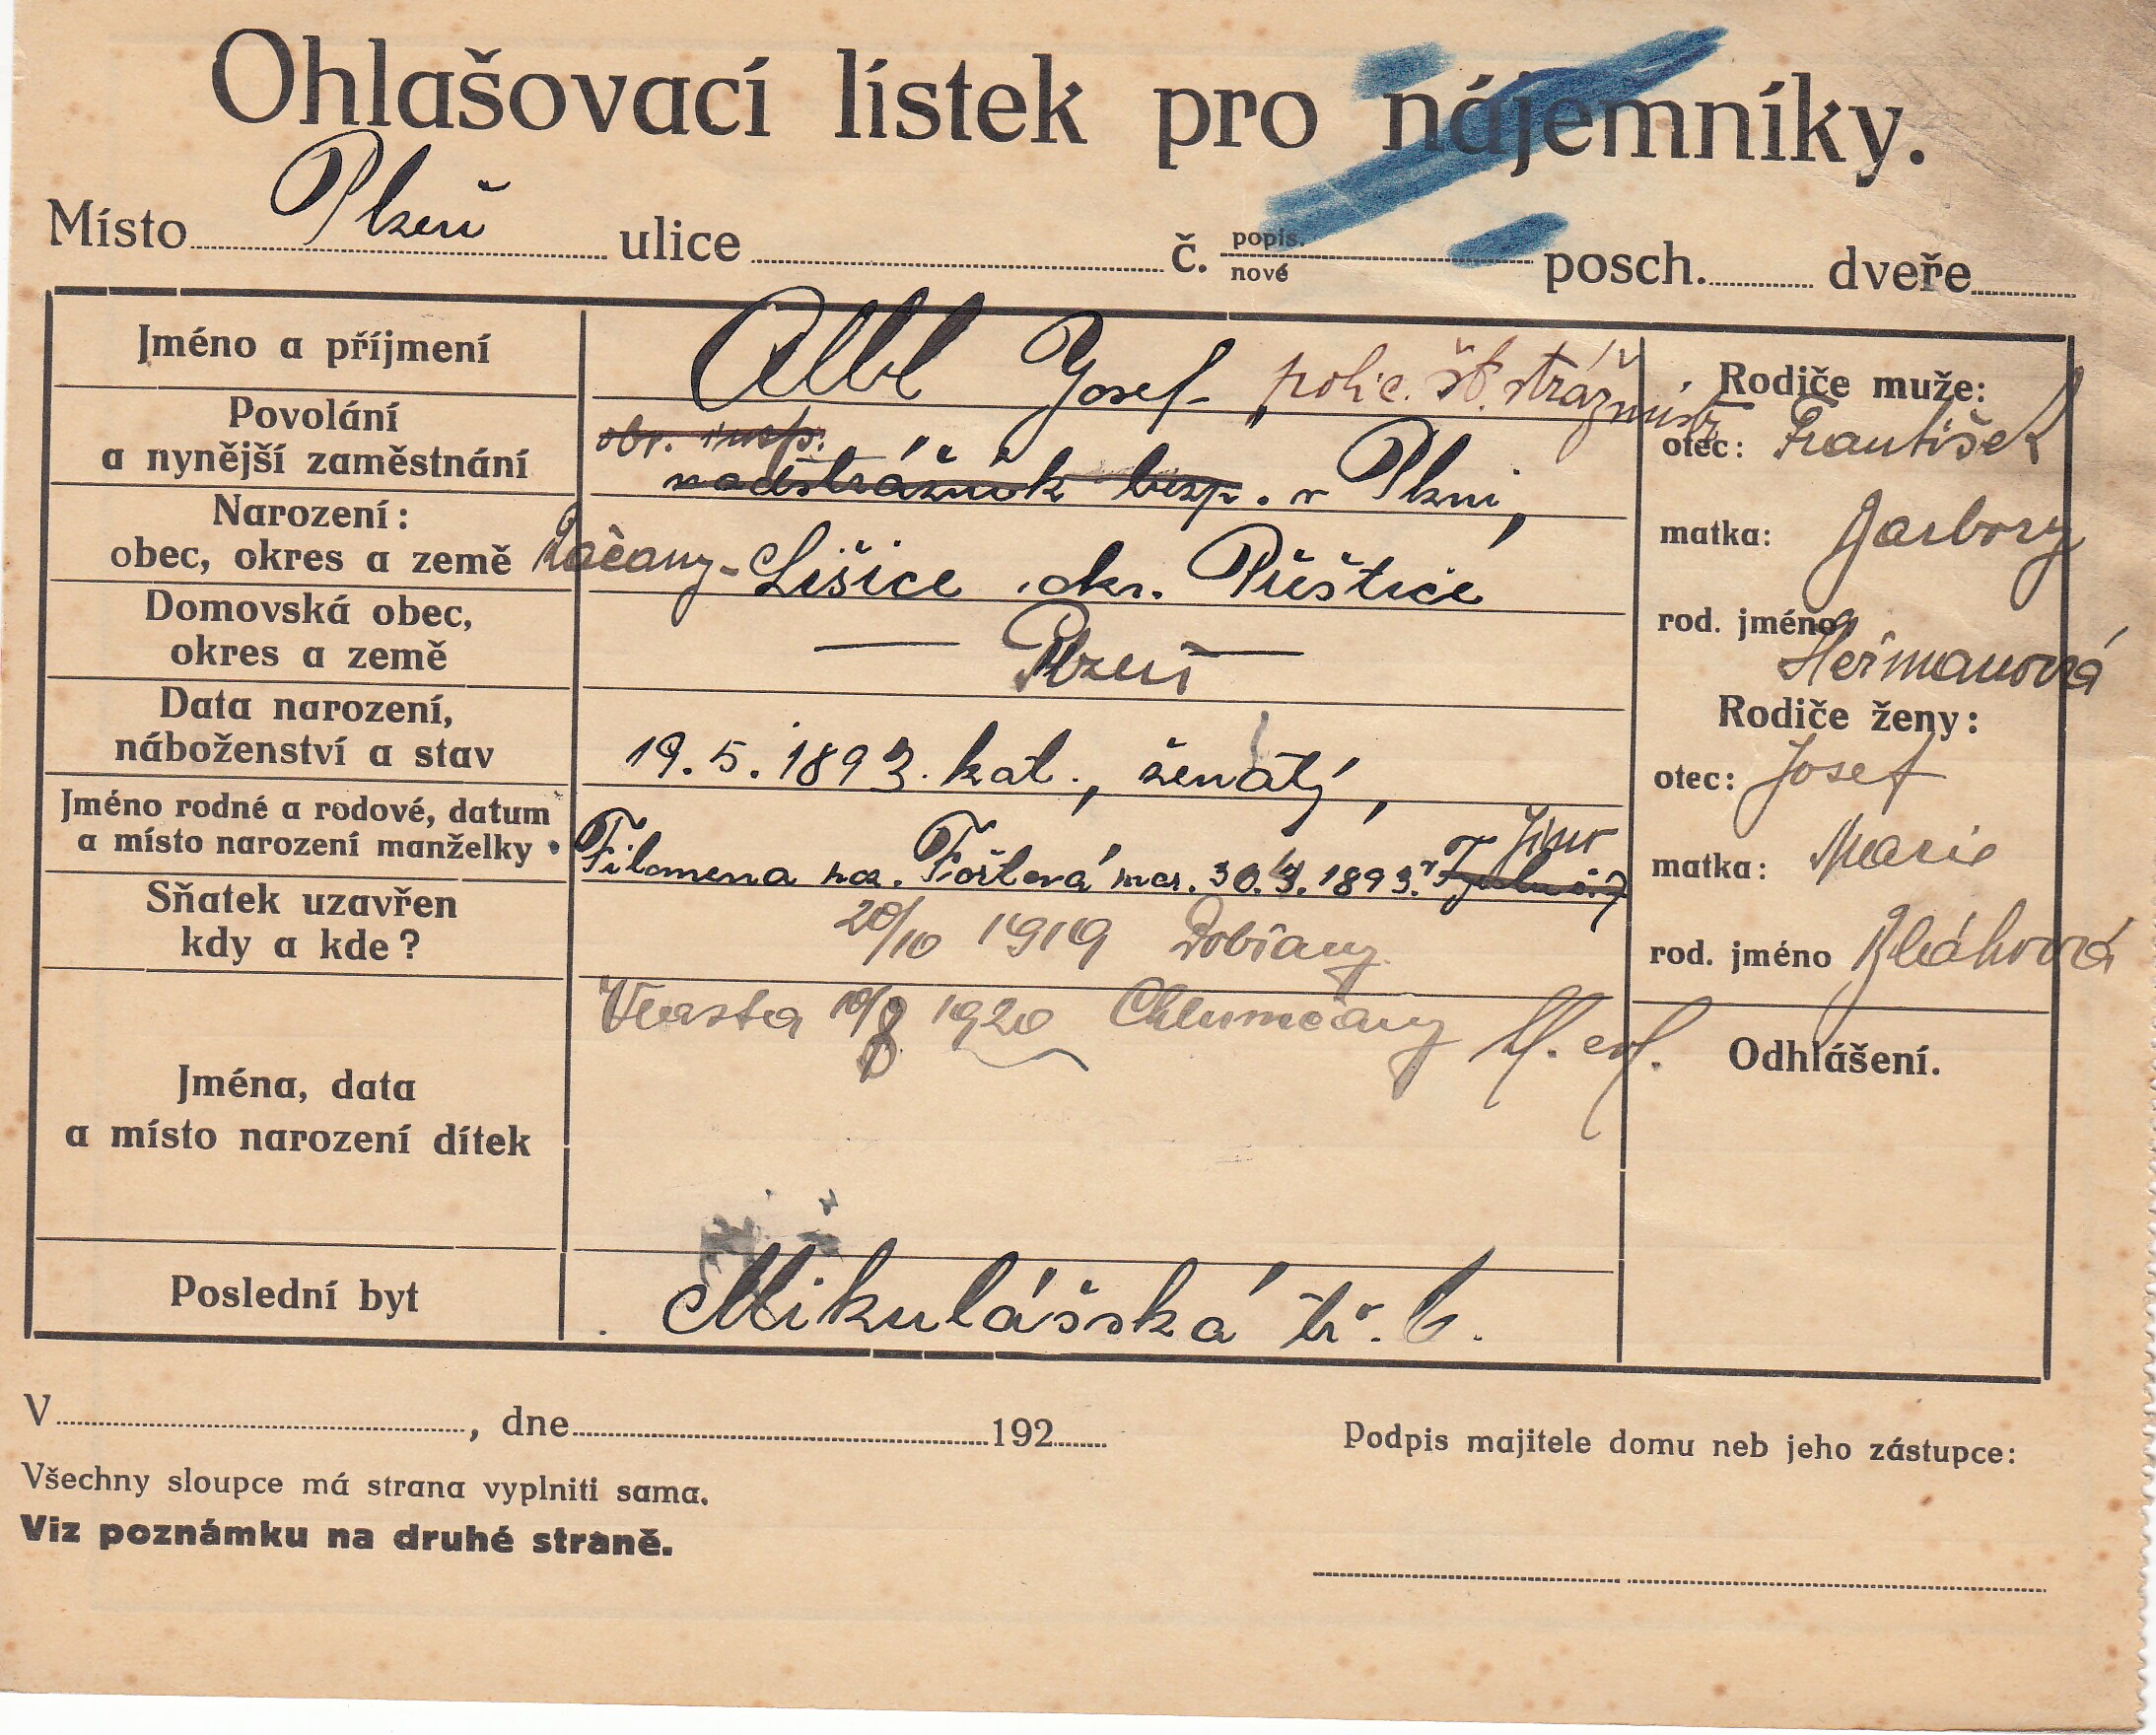 Ohlašovací lístek pro nájemníky.
Místo Plzeň ulice č. popis. nové posch. dveře
Jméno a příjmení Albl Josef polic. št. strážmistr
Povolání a nynější zaměstnání obv. insp.
nadstrážník bezp. v Plzni,
Narození:
obec, okres a země Lišice okr. Přeštice
Domovská obec,
okres a země — Plzeň —
Data narození,
náboženství a stav 19. 5. 1893. kat., ženatý,
Jméno rodné a rodové, datum
a místo narození manželky Filomena roz. Foštová nar. 30. 1893. v
Sňatek uzavřen
kdy a kde? 20/10 1919 Dobřany
Jména, data
a místo narození dítek Vlasta 10/8 1920 Chlumčany
Poslední byt Mikulášská tř. 6.
Rodiče muže:
otec: František
matka: Barbory
rod. jméno Heřmanová
Rodiče ženy:
otec: Josef
matka: Marie
rod. jméno Bláhová
Odhlášení.
V , dne 192
Podpis majitele domu neb jeho zástupce:
Všechny sloupce má strana vyplniti sama.
Viz poznámku na druhé straně.